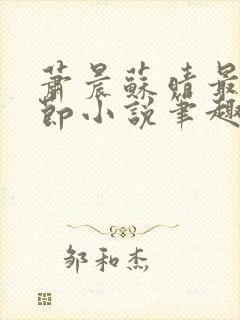 蕭晨蘇晴最
節小說筆趣
鄒和杰